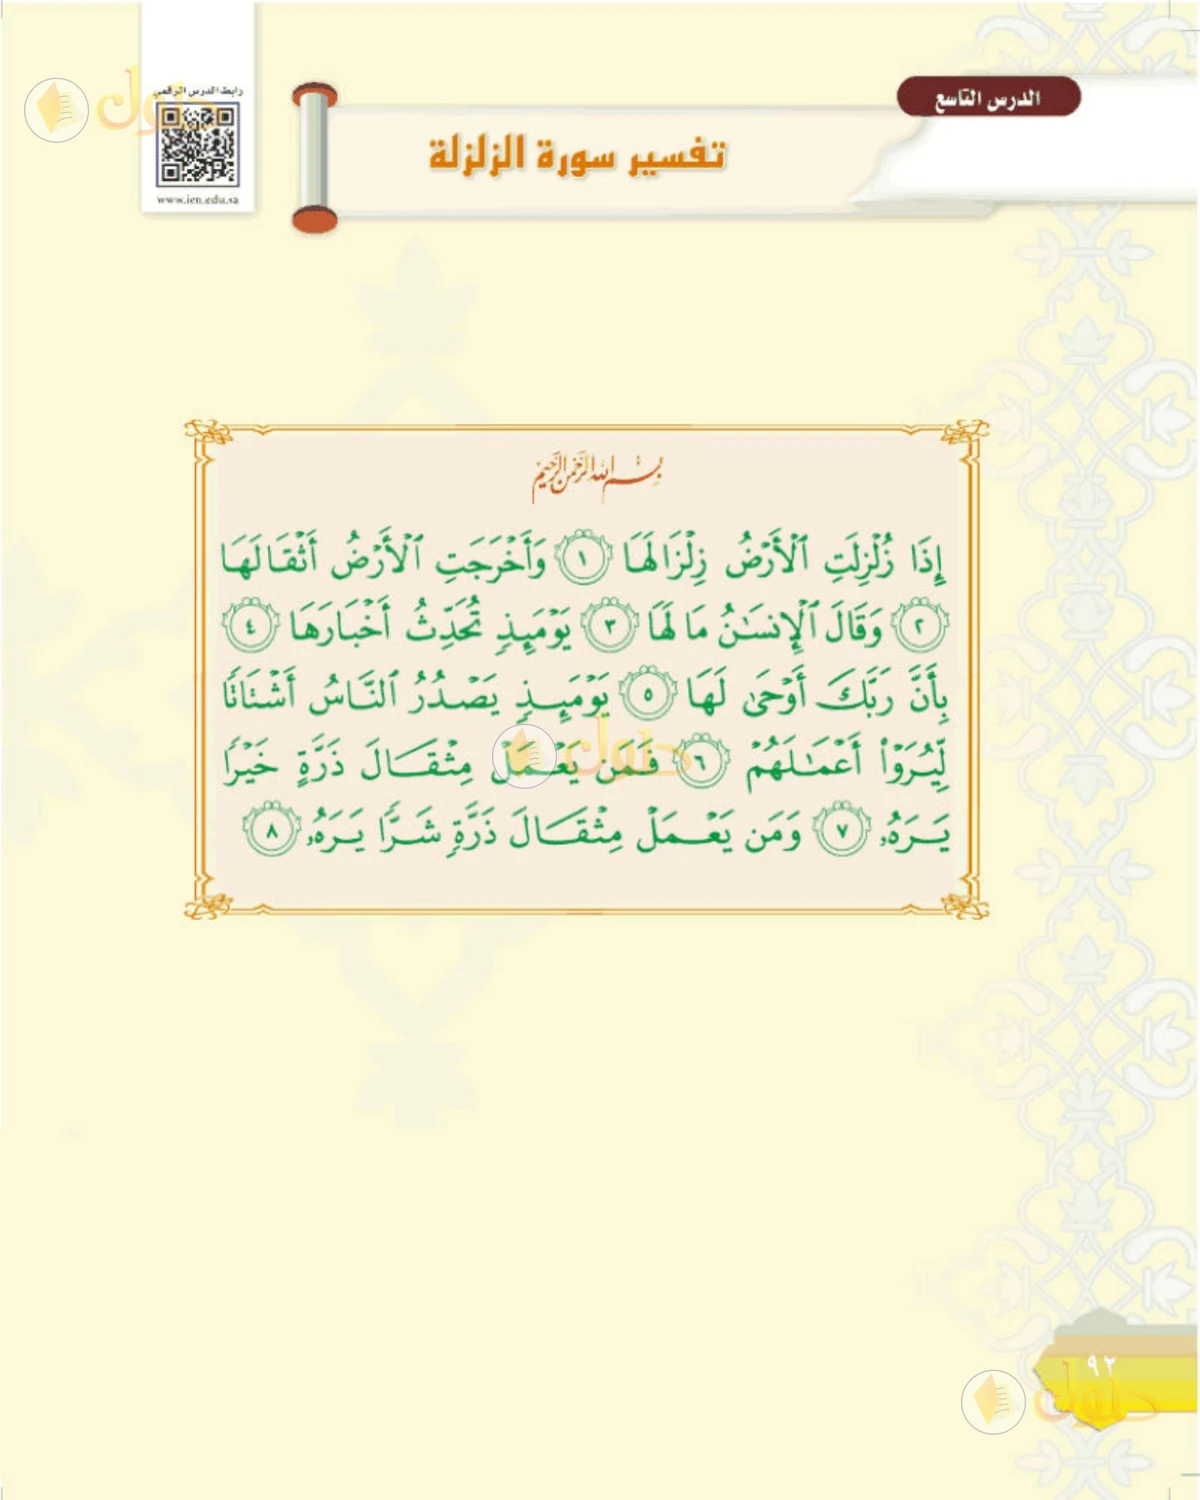 الدرس التاسع
رابط الدرس الرقمي
www.ien.edu.sa
تفسير سورة الزلزلة
بِسْمِ اللَّهِ الرَّحْمَٰنِ الرَّحِيمِ
إِذَا زُلْزِلَتِ ٱلْأَرْضُ زِلْزَالَهَا ١ وَأَخْرَجَتِ ٱلْأَرْضُ أَثْقَالَهَا
٢ وَقَالَ ٱلْإِنسَٰنُ مَا لَهَا ٣ يَوْمَئِذٍ تُحَدِّثُ أَخْبَارَهَا ٤
بِأَنَّ رَبَّكَ أَوْحَىٰ لَهَا ٥ يَوْمَئِذٍ يَصْدُرُ ٱلنَّاسُ أَشْتَاتًا
لِّيُرَوْا۟ أَعْمَٰلَهُمْ ٦ فَمَن يَعْمَلْ مِثْقَالَ ذَرَّةٍ خَيْرًا
يَرَهُۥ ٧ وَمَن يَعْمَلْ مِثْقَالَ ذَرَّةٍ شَرًّا يَرَهُۥ ٨
حلول
حلول
٩٢
حلول